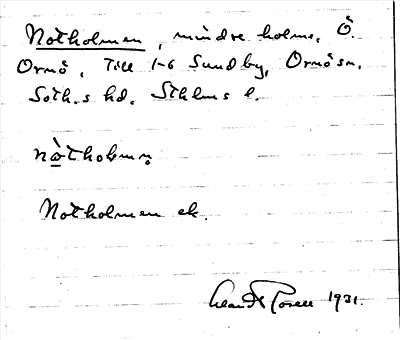 Notholmen, mindre holme, Ö.
Ornö. Till 1-6 Sundby, Ornö sn.
Soth.s hd. Sthlms l.
nòtholmən
Notholmen ek.
1931.